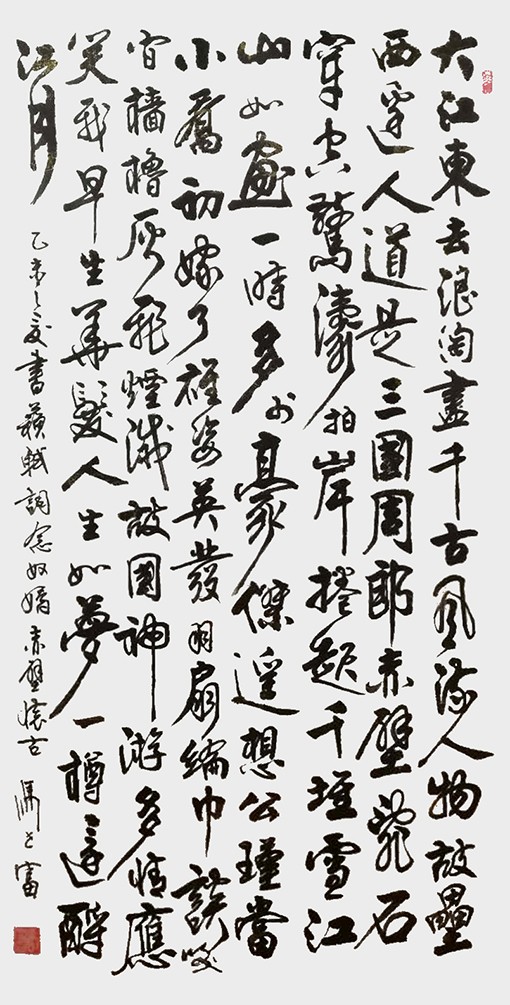 大江東去浪淘盡千古風流人物故壘
西邊人道是三國周郎赤壁亂石
穿空驚濤拍岸捲起千堆雪江
山如畫一時多少豪傑遥想公瑾當
小喬初嫁了雄姿英發羽扇綸巾談笑
間檣櫓灰飛煙滅故國神游多情應
笑我早生華髮人生如夢一樽還酹
江月
乙未之夏書蘇軾詞念奴嬌赤壁懷古